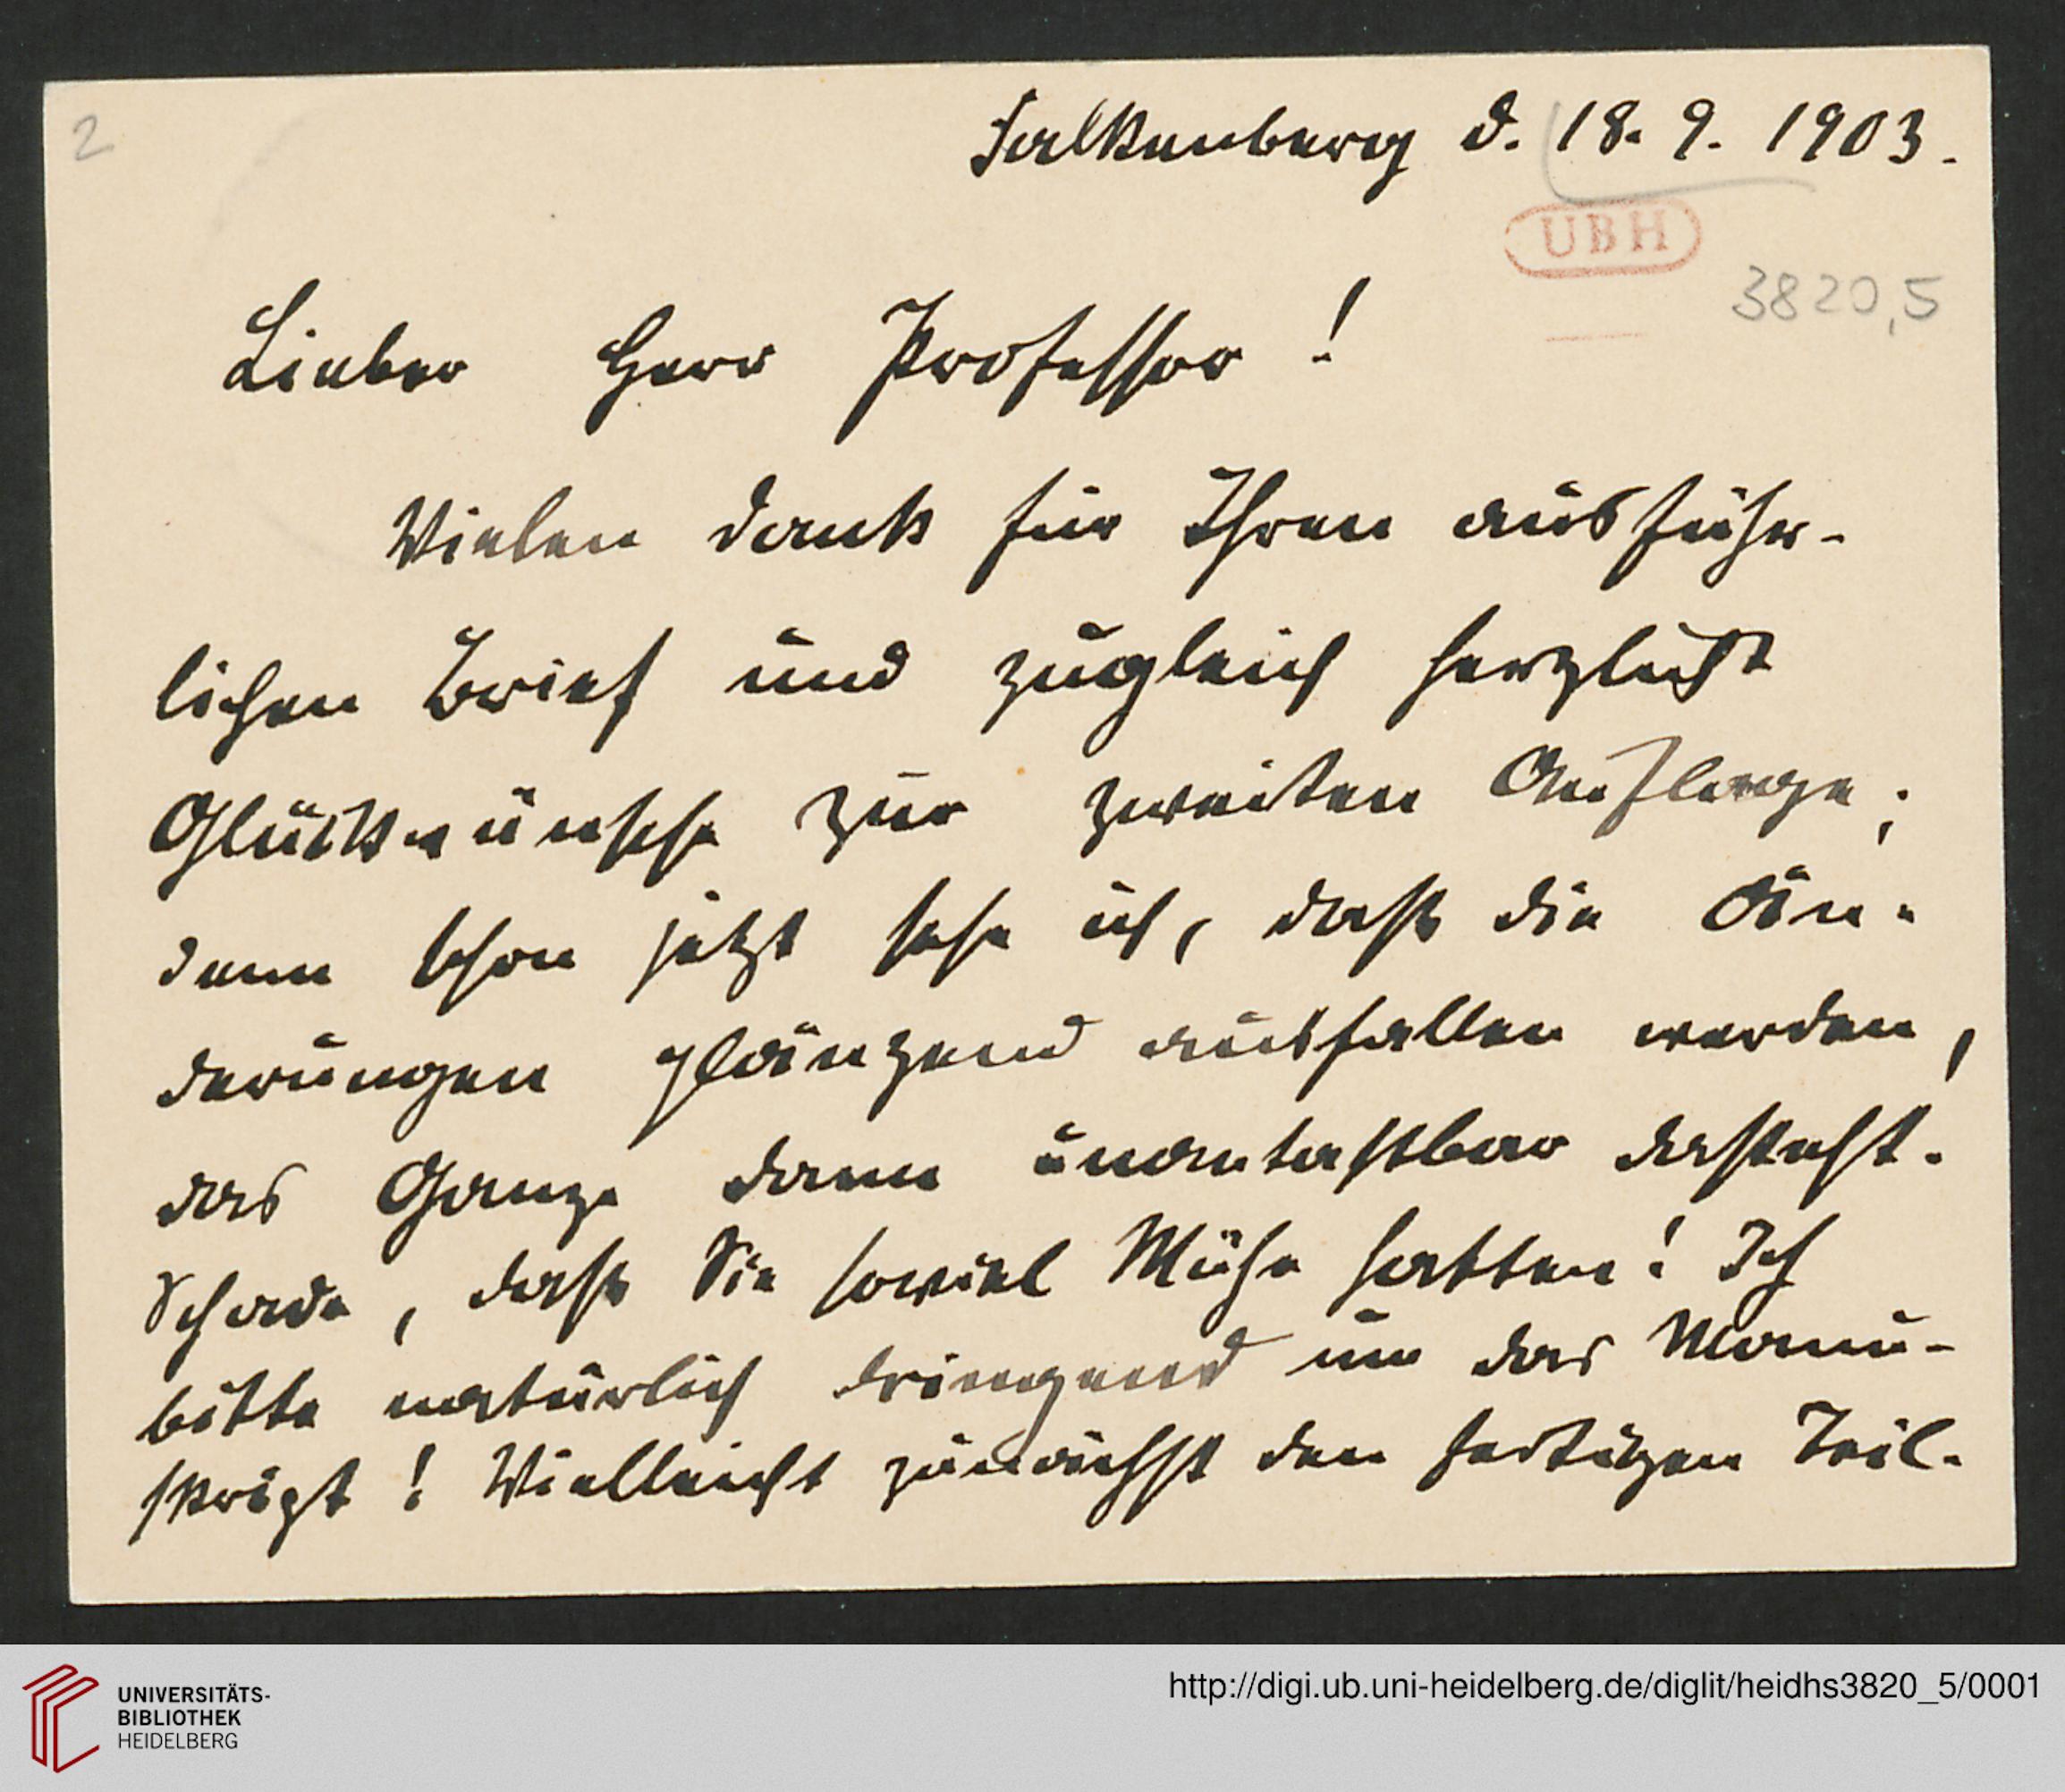 2
Falkenberg d. 18. 9. 1903.
UBH
3820,5
Lieber Herr Professor!
Vielen Dank für Ihren ausführ-
lichen Brief und zugleich herzlichst
Glückwünsche zur zweiten Auflage;
denn schon jetzt sehe ich, dass die Än-
derungen glänzend ausfallen werden,
das Ganze dann unantastbar dasteht.
Schade, dass Sie soviel Mühe hatten! Ich
bitte natürlich dringend um das Manu-
skript! Vielleicht zunächst den fertigen Teil.
UNIVERSITÄTS-
BIBLIOTHEK
HEIDELBERG
http://digi.ub.uni-heidelberg.de/diglit/heidhs3820_5/0001